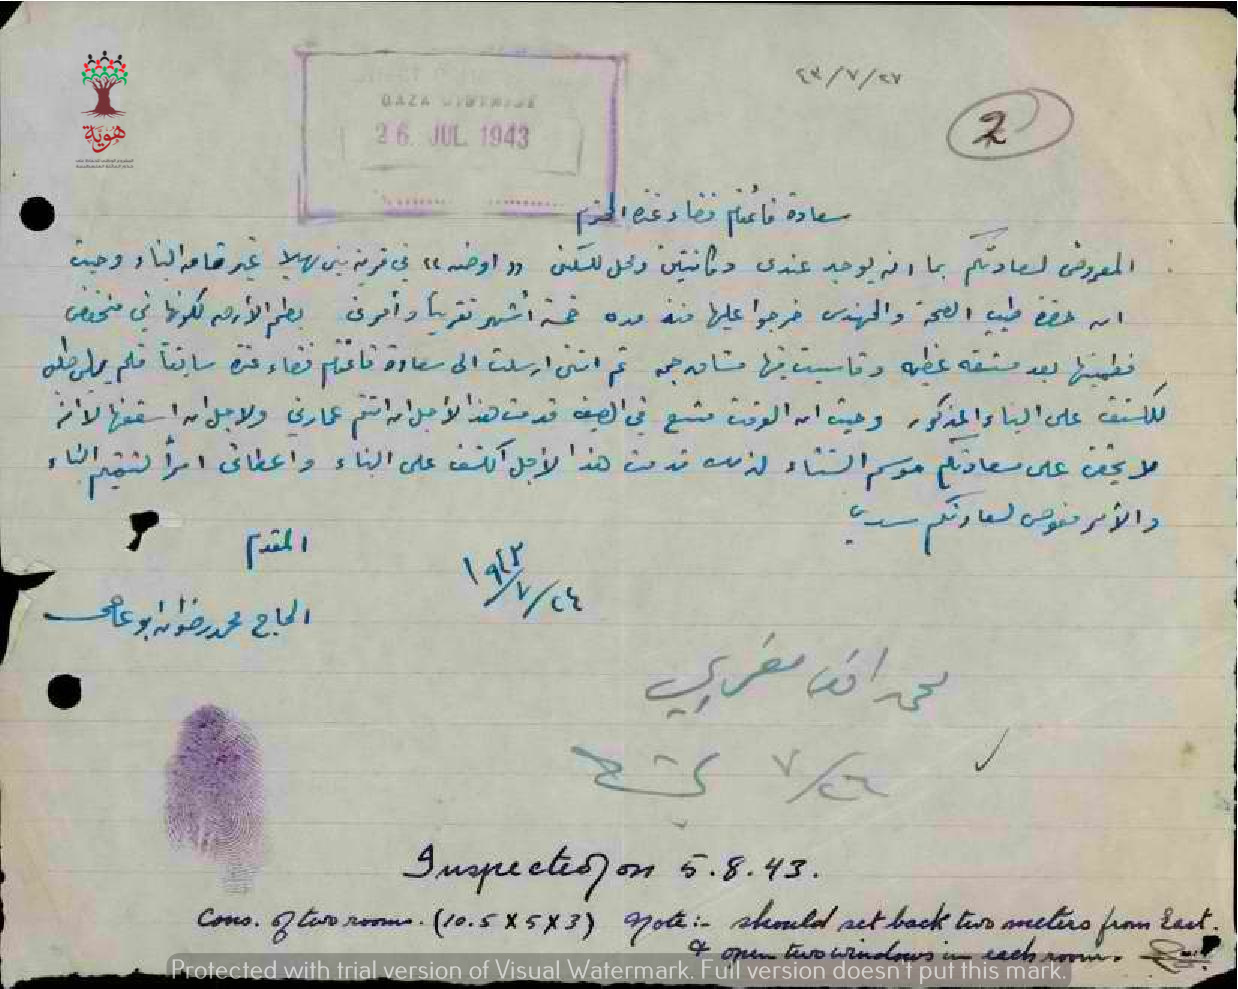 ٤٣/٧/٢٧
2
GAZA
26. JUL. 1943
هوية
سعادة قائمقام قضاء غزه المحترم
المعروض لسعادتكم بما انه يوجد عندي دكانتين ومحل للسكن «اوضه» في قرية بني سهيلا غير تامه البناء وحيث
ان حضرة طبيب الصحة والمهندس خرجوا عليها منذ مده خمسة أشهر تقريباً وأمروني بطم الأرض لكونها في منخفض
فطميتها بعد مشقه عظيمه وقاسيت فيها مشاق جمه ثم انني ارسلت الى سعادة قائمقام قضاء غزة سابقاً فلم
للكشف على البناء المذكور وحيث ان الوقت متسع في الصيف قدمت هذا لأجل ان اتمم عمارتي ولاجل ان اسقفها لأنه
لا يخفى على سعادتكم موسم الشتاء لذلك قدمت هذا لأجل الكشف على البناء واعطائي امراً لتتميم البناء
والأمر مفوض لسعادتكم سيدي
المقدم
١٩٤٣/٧/٢٤
الحاج محمد رضوان ابو عاصي
محمد
٧/٢٤
Inspected on 5.8.43.
Cons. of two rooms. (10.5 X 5 X 3) Note:- should set back two meters from East.
& open two windows in each room.
Protected with trial version of Visual Watermark. Full version doesn't put this mark.